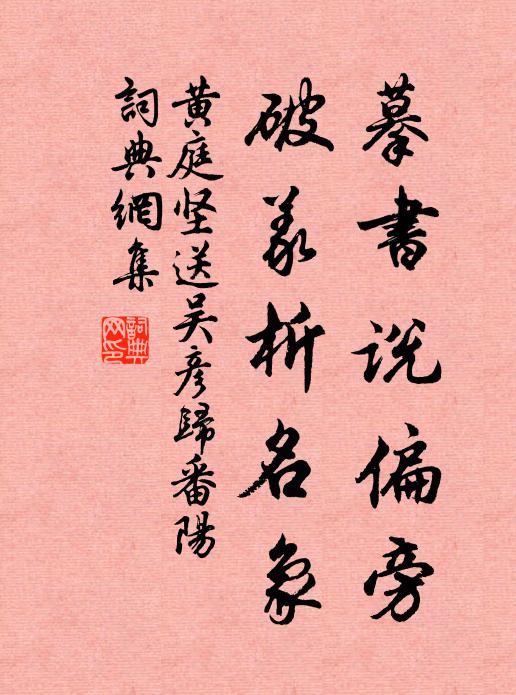 摹書説偏旁
破義析名象
黄庭坚送吴彦歸番陽
詞典網集
詞典網印